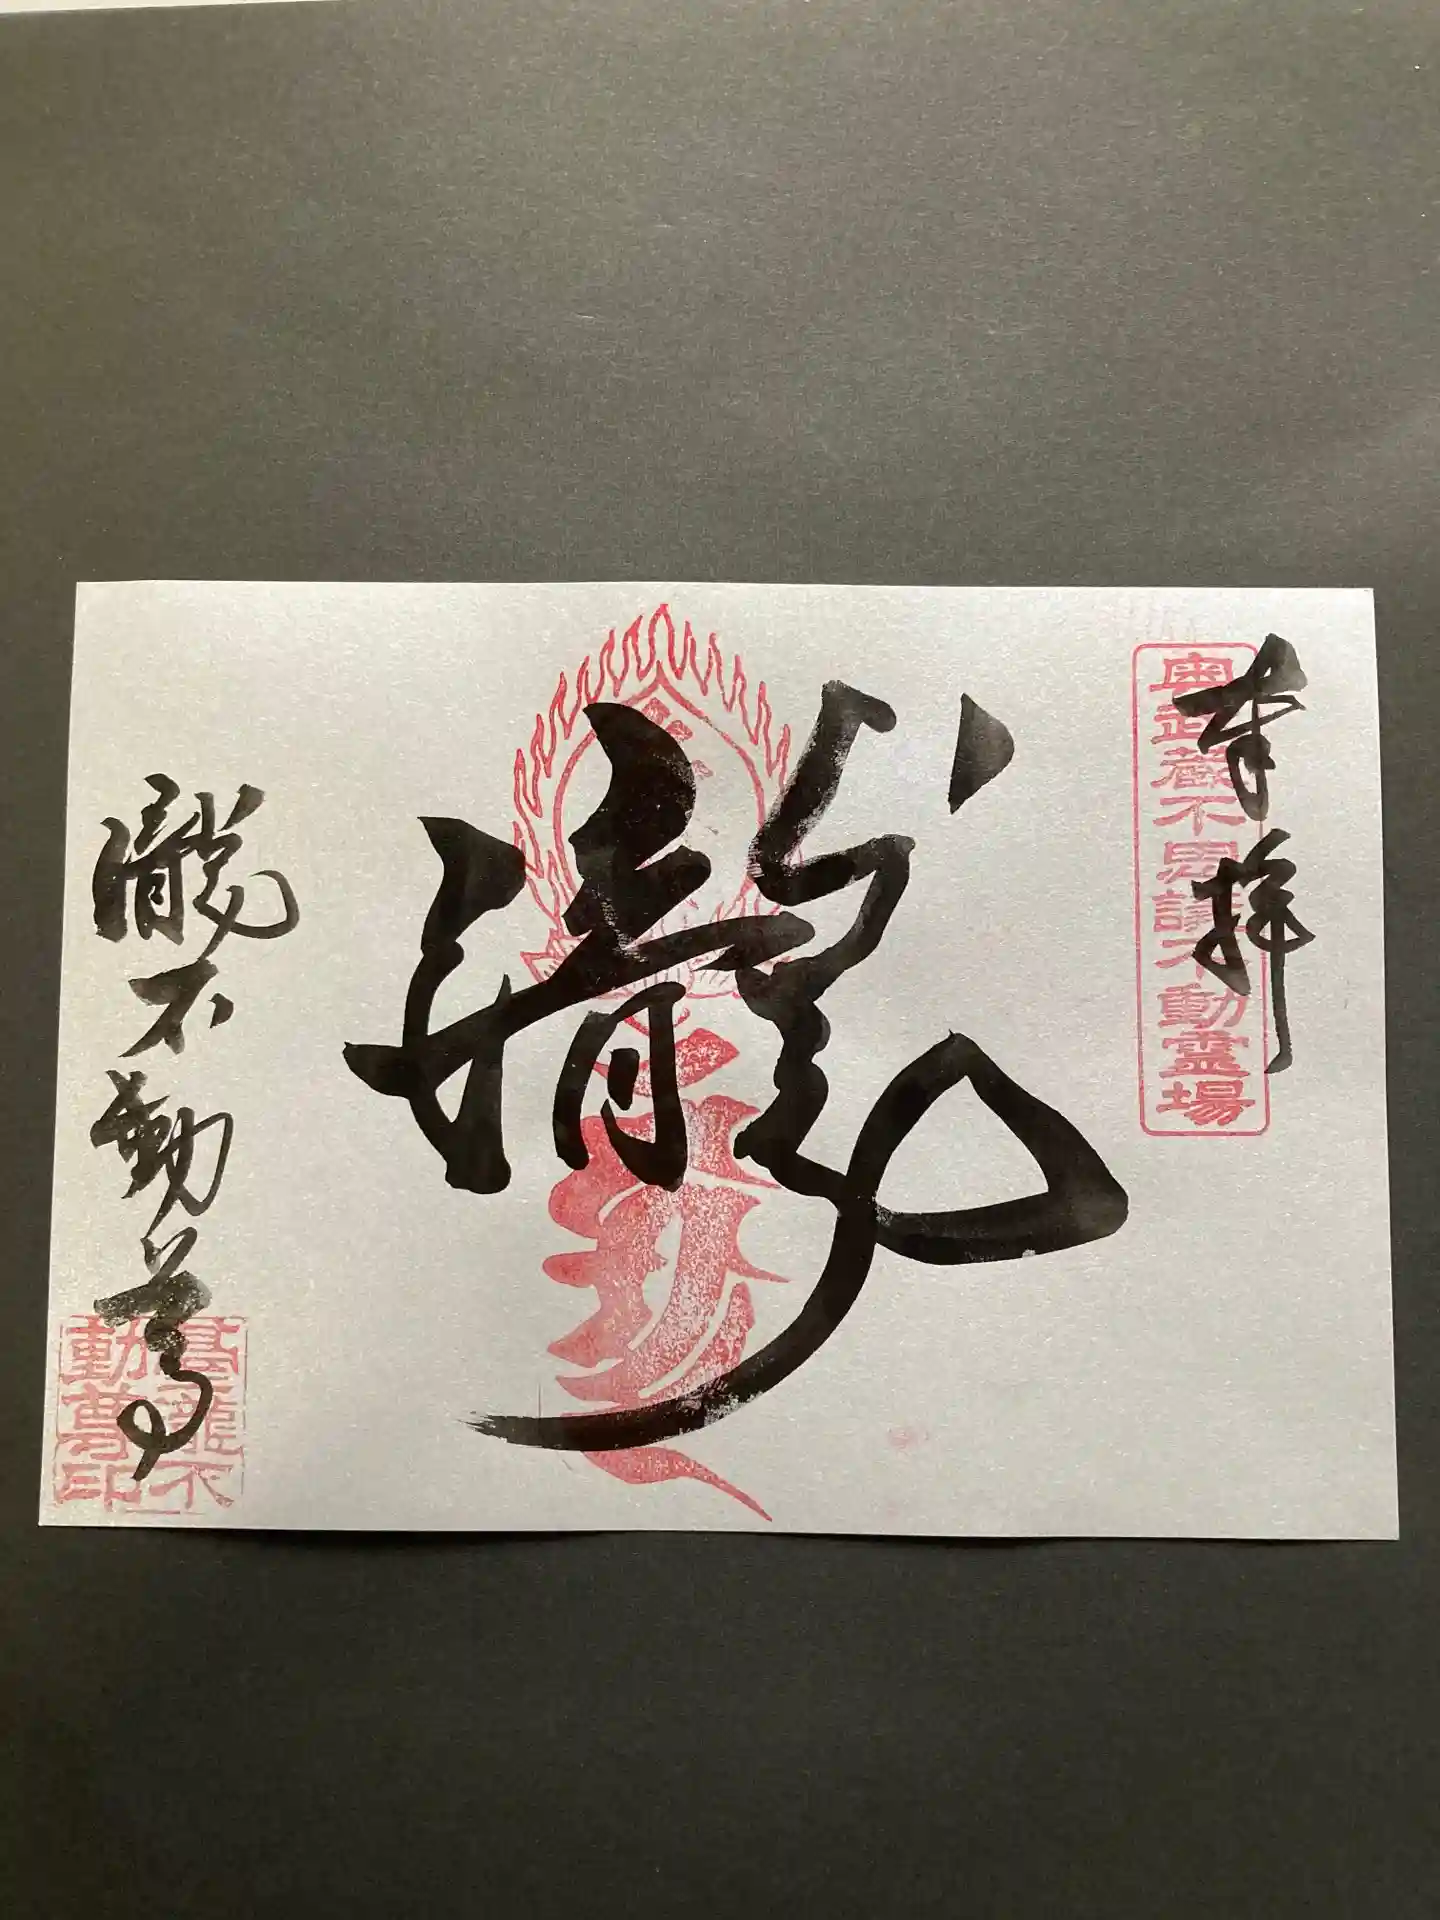 奉拝
奥武蔵不思議不動霊場
瀧
瀧不動尊
高瀧不
動尊印